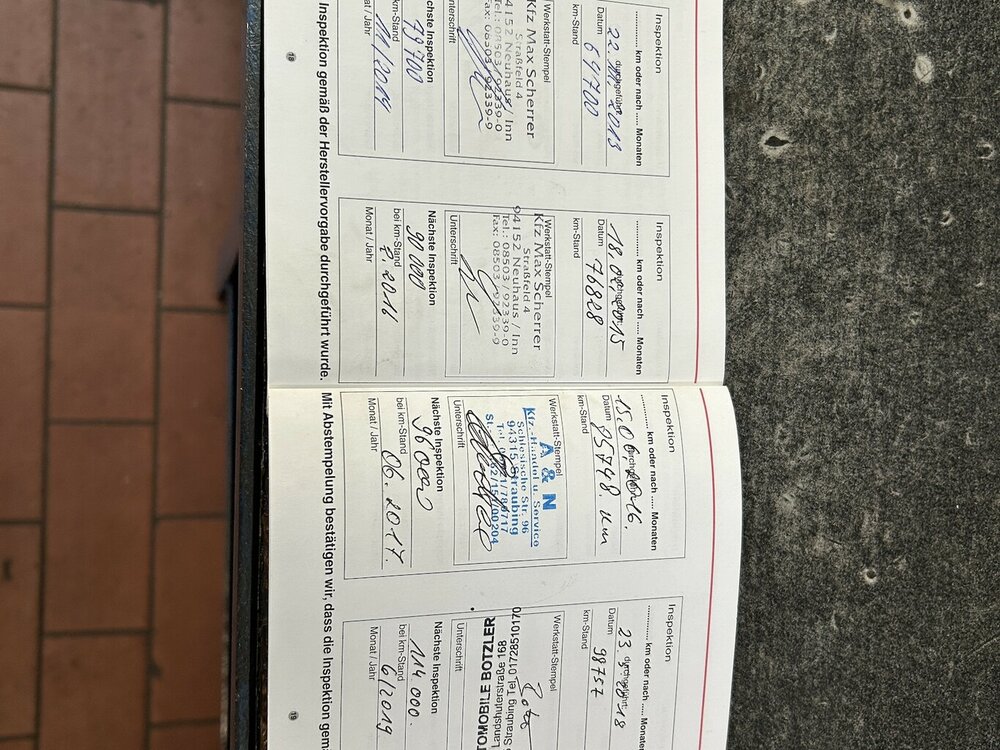 Inspektion
............ km oder nach ..... Monaten
durchgeführt
22. 11. 2013
Datum
64700
km-Stand
Werkstatt-Stempel
Kfz Max Scherrer
Straßfeld 4
94152 Neuhaus / Inn
Tel.: 08503 / 92339-0
Fax: 08503 / 92339-9
Unterschrift
Nächste Inspektion
79700
bei km-Stand
11/2014
Monat / Jahr
18
Inspektion
............ km oder nach ..... Monaten
durchgeführt
18. 02. 2015
Datum
76828
km-Stand
Werkstatt-Stempel
Kfz Max Scherrer
Straßfeld 4
94152 Neuhaus / Inn
Tel.: 08503 / 92339-0
Fax: 08503 / 92339-9
Unterschrift
Nächste Inspektion
90000
bei km-Stand
2. 2016
Monat / Jahr
Inspektion gemäß der Herstellervorgabe durchgeführt wurde.
Inspektion
............ km oder nach ..... Monaten
durchgeführt
15. 06. 2016.
Datum
85748. km
km-Stand
Werkstatt-Stempel
A & N
Kfz.-Handel u. Service
Schlesische Str. 96
94315 Straubing
Unterschrift
Nächste Inspektion
96000
bei km-Stand
06. 2017.
Monat / Jahr
Inspektion
............ km oder nach ..... Monaten
durchgeführt
23. 5. 2018
Datum
98757
km-Stand
Werkstatt-Stempel
TOMOBILE BOTZLER
Landshuterstraße 168
Straubing Tel. 01728510170
Unterschrift
Nächste Inspektion
114000.
bei km-Stand
6/2019
Monat / Jahr
19
Mit Abstempelung bestätigen wir, dass die Inspektion gemä